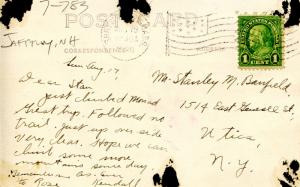 7-783
POST CARD
Jaffrey, N H
CORRESPONDENCE
1 CENT 1
Sun Aug. 19,
Dear Stan
Just climbed Monad
Great trip. Followed no
trail, just up over side
Very clear. Hope we can
climb some more
mountains some day.
Remember as ever
to Rose Kendall
Mr. Stanley M. Banfield
1514 East St.
Utica,
N.Y.